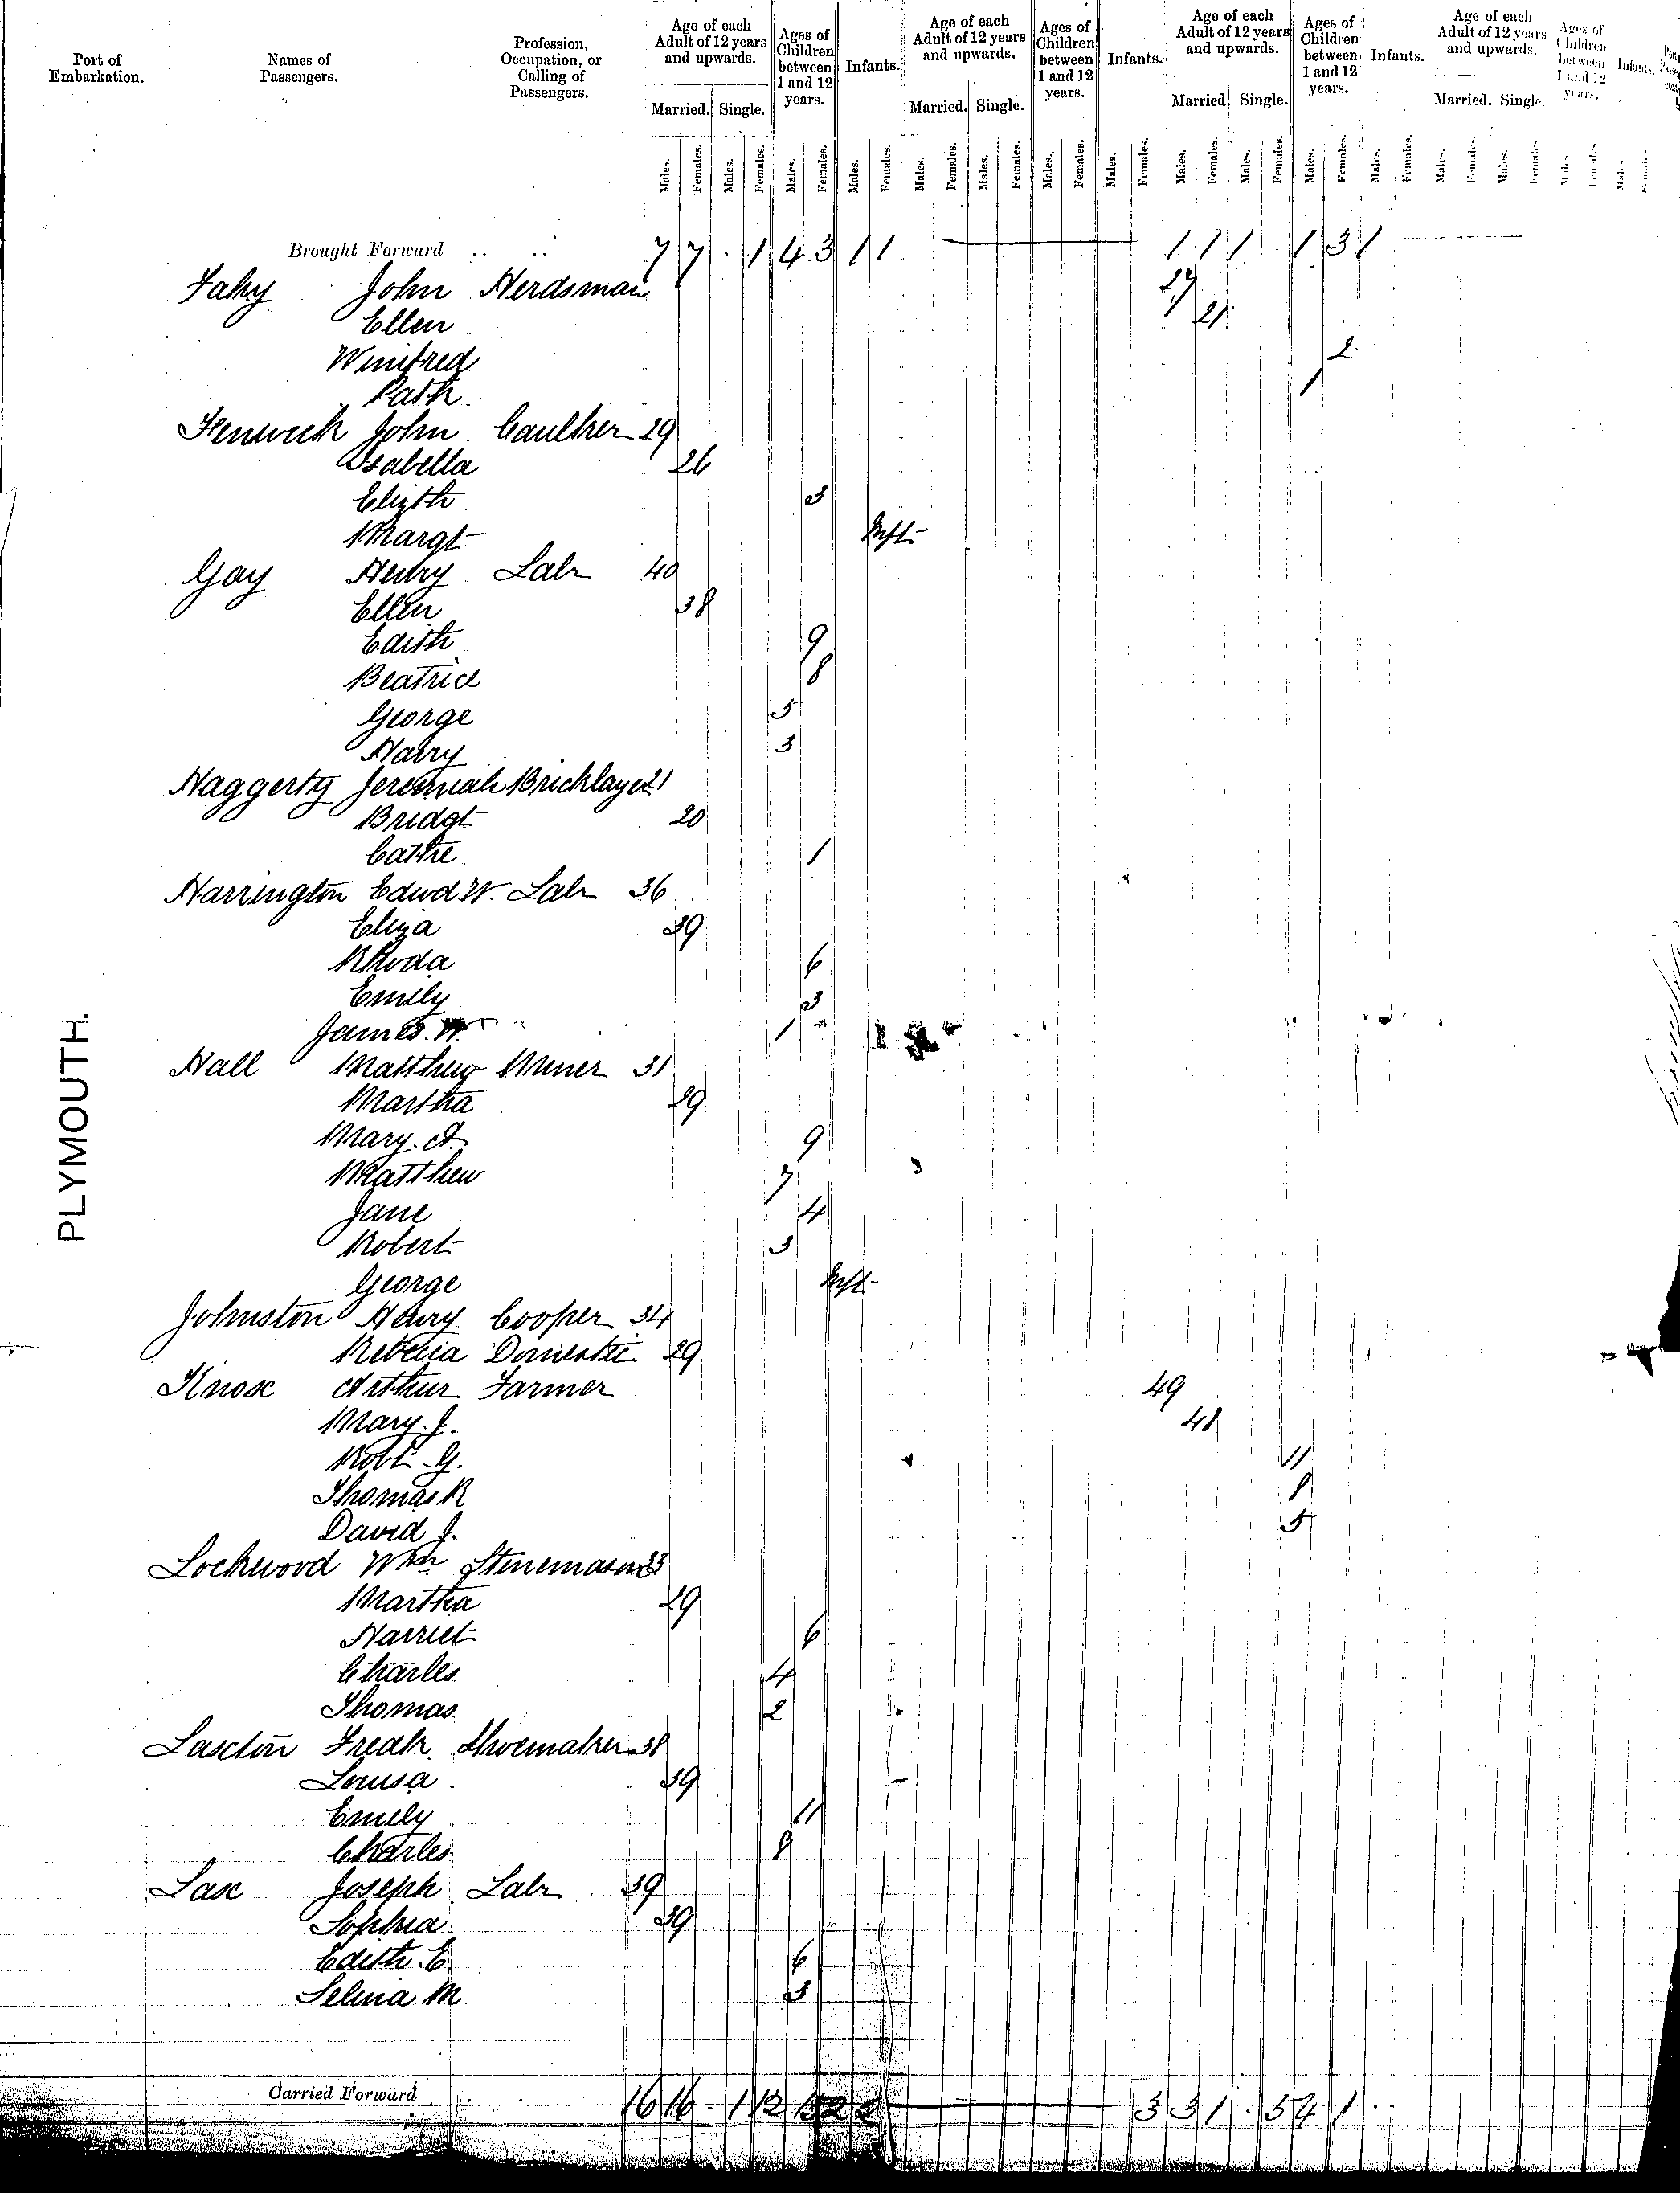 Port of Embarkation. Names of Passengers. Profession, Occupation, or Calling of Passengers. Age of each Adult of 12 years and upwards. Ages of Children between 1 and 12 years. Infants. Age of each Adult of 12 years and upwards. Ages of Children between 1 and 12 years. Infants. Age of each Adult of 12 years and upwards. Ages of Children between 1 and 12 years. Infants. Age of each Adult of 12 years and upwards. Ages of Children between 1 and 12 years. Infants.
Married. Single. Married. Single. Married. Single. Married. Single.
Males. Females. Males. Females. Males. Females. Males. Females. Males. Females. Males. Females. Males. Females. Males. Females. Males. Females. Males. Females. Males. Females. Males. Females. Males. Females. Males. Females. Males. Females. Males. Females.
Brought Forward .. .. 7 7 . 1 4 3 1 1 1 1 1 . 1 3 1
Fahy John Herdsman 27
Ellen 21
Winifred 2
Patk 1
Fenwick John Caulker 29
Isabella 26
Elizth 3
Margt Inft
Gay Henry Labr 40
Ellen 38
Edith 9
Beatrice 8
George 5
Harry 3
Haggerty Jeremiah Bricklayer 21
Bridgt 20
Cathe 1
Harrington Edwd W. Labr 36
Eliza 39
Rhoda 6
Emily 3
James W. 1
Hall Matthew Miner 31
Martha 29
Mary. A. 9
Matthew 7
Jane 4
Robert 3
George Inft
Johnston Henry Cooper 34
Rebecca Domestic 29
Knox Arthur Farmer 49
Mary. J. 48
Robt. G. 11
Thomas R 8
David J. 5
Lockwood Wm Stonemason 33
Martha 29
Harriet 6
Charles 4
Thomas 2
Laxton Fredk. Shoemaker 38
Louisa 39
Emily 11
Charles 8
Lax Joseph Labr 39
Sophia 39
Edith. E. 6
Selina M 3
PLYMOUTH.
Carried Forward 16 16 . 1 12 15 2 2 3 3 1 . 5 4 1